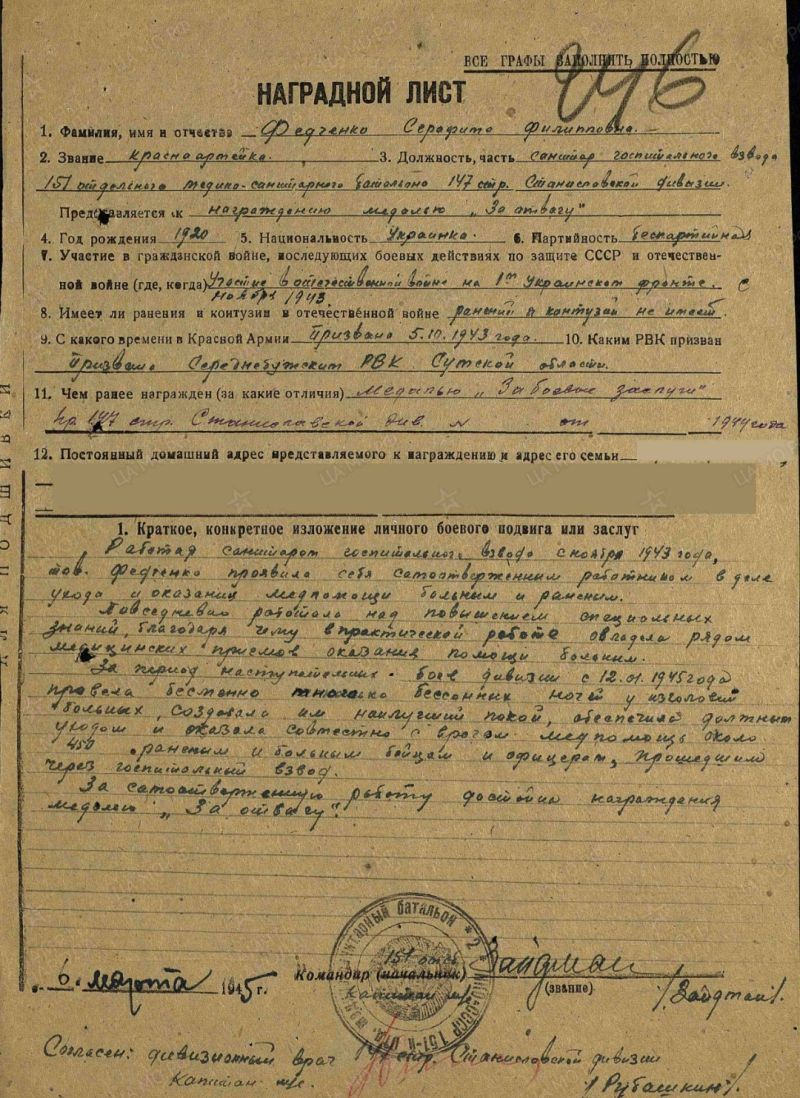 ВСЕ ГРАФЫ ЗАПОЛНЯТЬ ПОЛНОСТЬЮ
НАГРАДНОЙ ЛИСТ
1. Фамилия, имя и отчество Федченко Серафима Филипповна.
2. Звание красноармейка. 3. Должность, часть санитар госпитального взвода
151 отдельного медико-санитарного батальона 147 стр. Станиславской дивизии.
Представляется к награждению медалью „За отвагу"
4. Год рождения 1920 5. Национальность Украинка. 6. Партийность беспартийная
7. Участие в гражданской войне, последующих боевых действиях по защите СССР и отечествен-
ной войне (где, когда) Участие в отечественной войне на 1ом Украинском фронте. с
ноября 1943.
8. Имеет ли ранения и контузии в отечественной войне ранений и контузий не имеет.
9. С какого времени в Красной Армии Призвана 5.10.1943 года. 10. Каким РВК призван
Призвана Середнебудским РВК Сумской области.
11. Чем ранее награжден (за какие отличия) медалью „За боевые заслуги"
Пр 147 стр. Станиславской див. N от 1944 года
12. Постоянный домашний адрес представляемого к награждению и адрес его семьи
1. Краткое, конкретное изложение личного боевого подвига или заслуг
Работая санитаром госпитального взвода с ноября 1943 года,
тов. Федченко проявила себя самоотверженным работником в деле
ухода и оказания медпомощи больным и раненим.
Повседневно работала над повышением специальных
знаний, благодаря чему в практической работе овладела рядом
медицинских приемов оказания помощи больным.
За период наступательных боев дивизии с 12.01.1945 года
провела бесменно много бессонных ночей у изголовий
больных, создавала им наилучший покой, обеспечила должным
уходом и оказала совместно с врачом медпомощь около
450 раненим и больным бойцам и офицерам, прошедшим
через госпитальный взвод.
За самоотверженную работу достойна награждения
медалью „За отвагу".
6. марта 1945 г.
151 отд.
Командир (начальник) Зайдман
Капитан м/с
(звание)
/Зайдман/.
Согласен: дивизионный врач 147 стр. Станиславской дивизии
Капитан м/с.
/Рубашкин/.